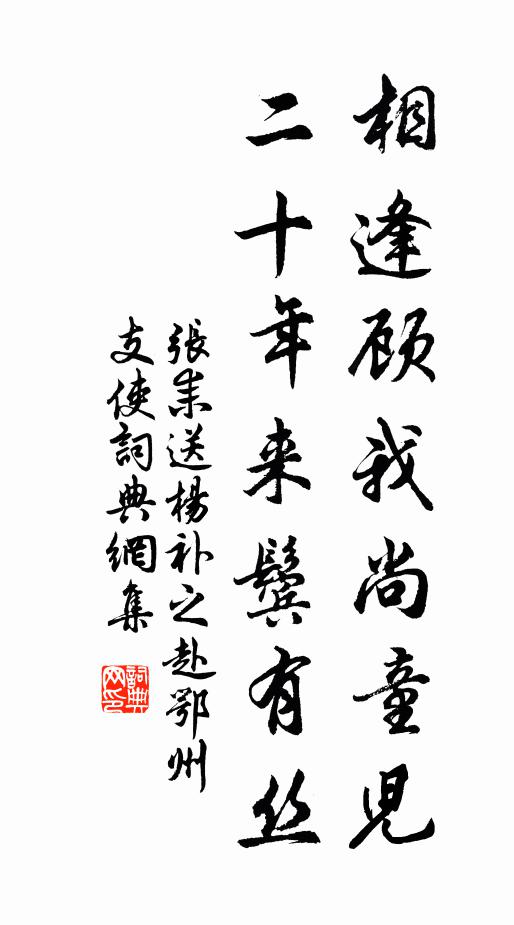 相逢顾我尚童児
二十年来鬓有丝
張耒送楊补之赴鄂州
支使詞典網集
詞典网印